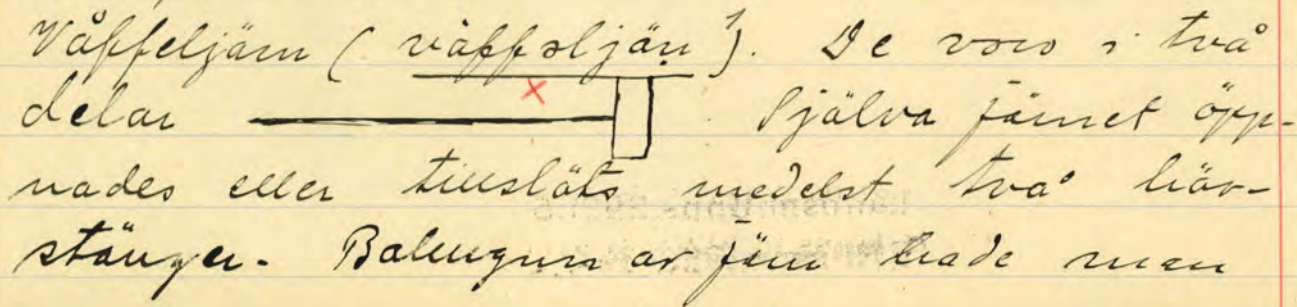 Våffeljärn (våffəljäṇ). De voro i två
delar Själva järnet öpp-
nades eller tillslöts medelst två häv-
stänger. av järn hade man